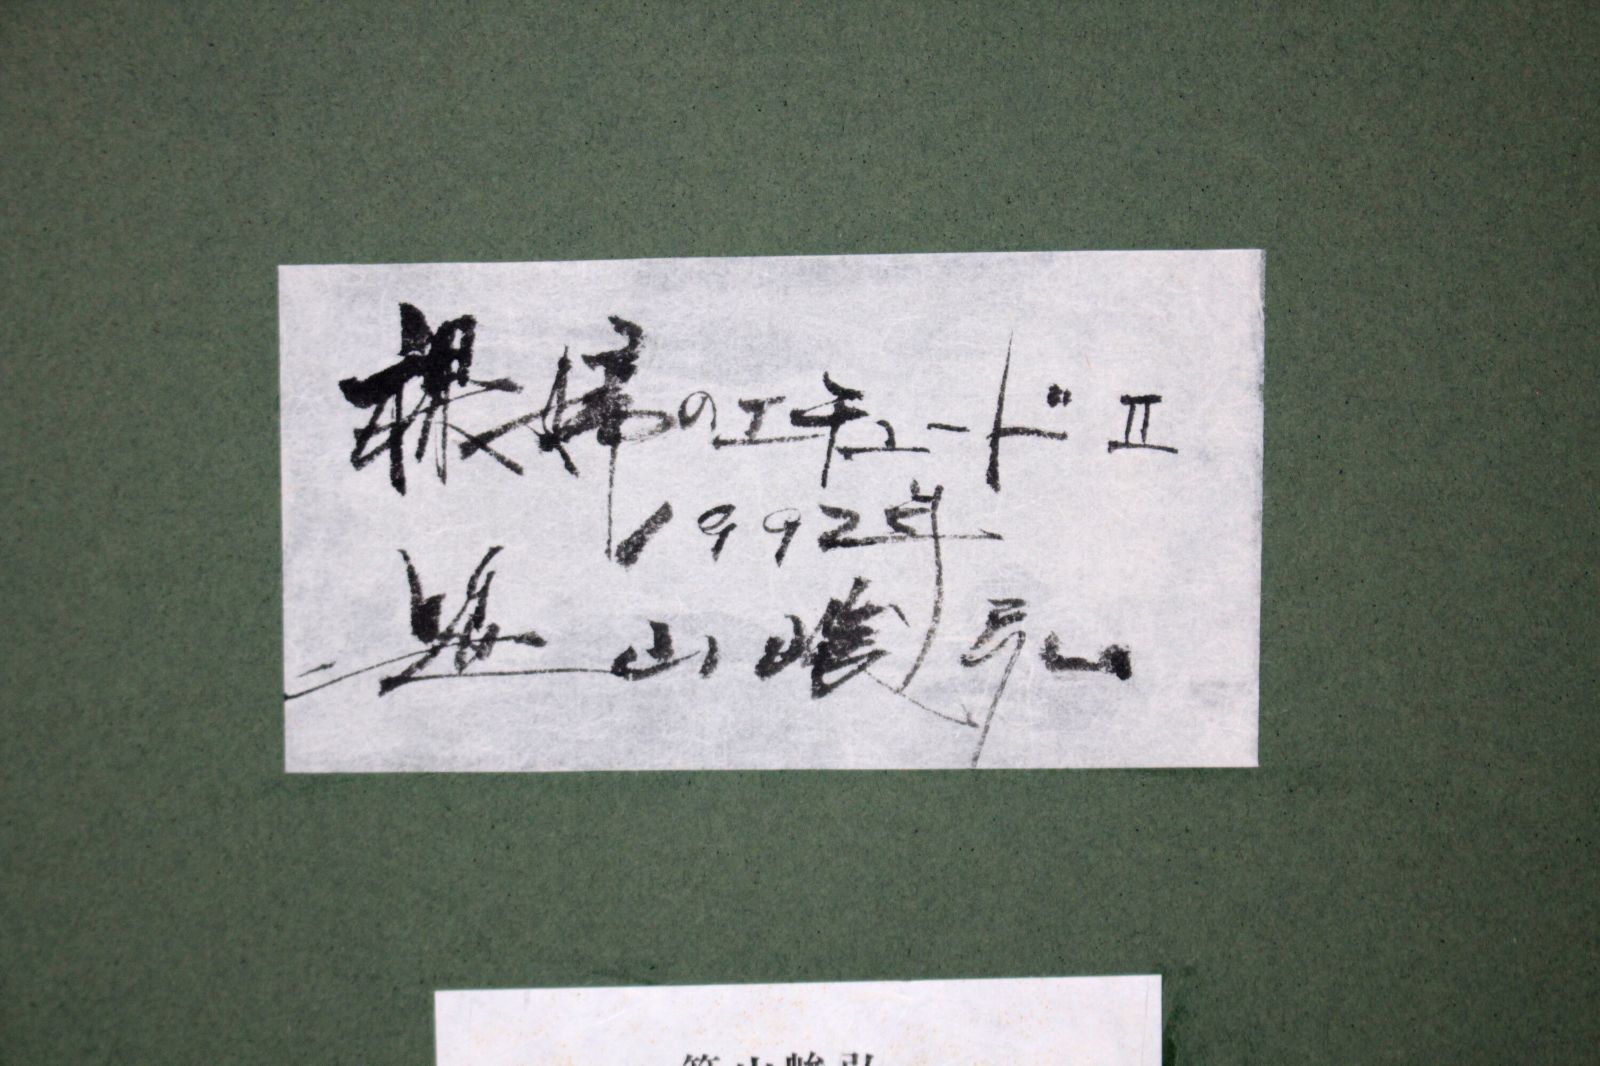 裸婦のエチュードⅡ
1992年
笹山峻弘
笹山峻弘